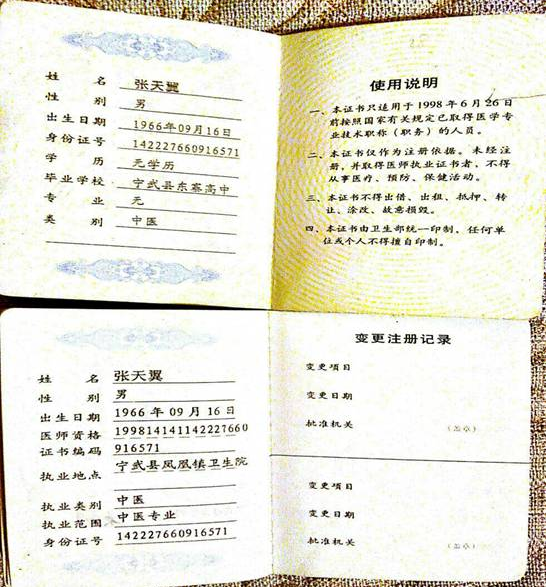 姓名 张天翼
性别 男
出生日期 1966年09月16日
身份证号 142227660916571
学历 无学历
毕业学校 宁武县东寨高中
专业 无
类别 中医
使用说明
一、本证书只适用于1998年6月26日
前按照国家有关规定已取得医学专
业技术职称（职务）的人员。
二、本证书仅作为注册依据。未经注
册，并取得医师执业证书者，不得
从事医疗、预防、保健活动。
三、本证书不得出借、出租、抵押、转
让、涂改、故意损毁。
四、本证书由卫生部统一印制，任何单
位或个人不得擅自印制。
姓名 张天翼
性别 男
出生日期 1966 年 09 月 16 日
医师资格 199814141142227660
证书编码 916571
执业地点 宁武县凤凰镇卫生院
执业类别 中医
执业范围 中医专业
身份证号 142227660916571
变更注册记录
变更项目
变更日期
批准机关 （盖章）
变更项目
变更日期
批准机关 （盖章）